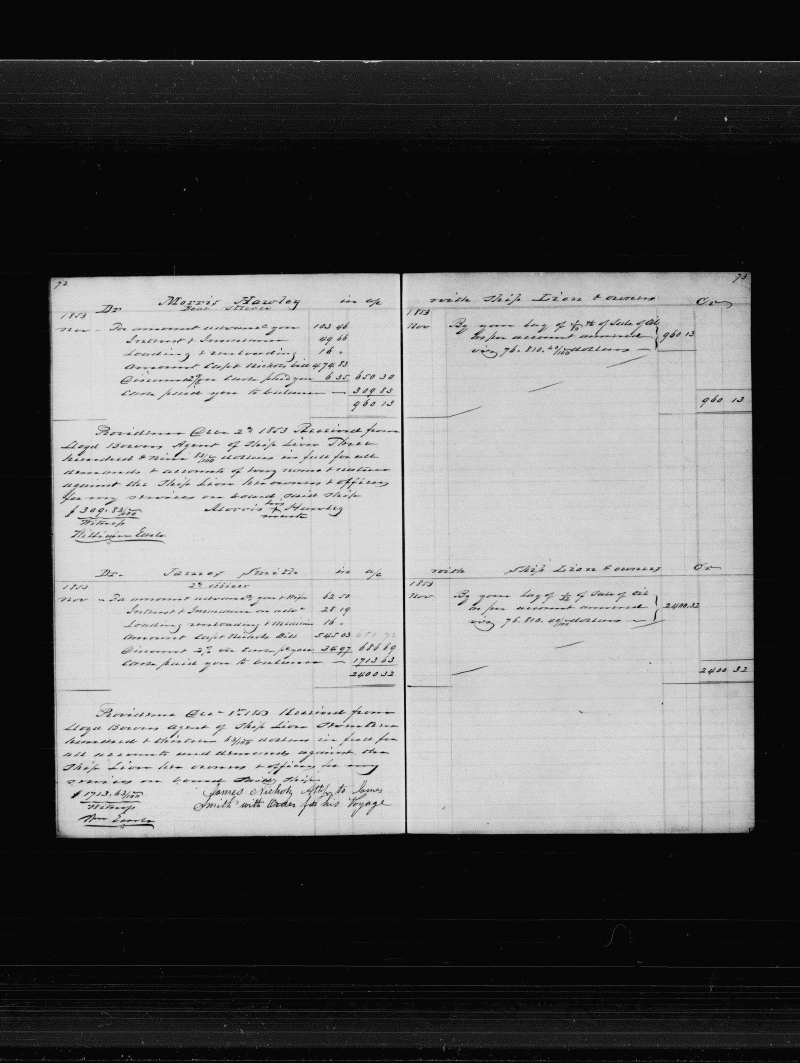 72
Dr. Morris Hawley in a/c
Boat Steerer
1853
Nov - To amount advanced you 103 46
Interest & Insurance 49 66
Loading & unloading 16 "
Amount Capt Nichols bill 474 83
Discount 2% on Cash paid you 6 35 650 30
Cash paid you to balance — 309 83
960 13
Providence Dec 2d 1853 Received from
Lloyd Bowers Agent of Ship Lion Three
hundred & Nine 83/100 dollars in full for all
demands & accounts of every name & nature
against the Ship Lion her owners & officers
for my services on board said Ship
$309.83/100 Morris his X Hawley
mark
Witness
William Earle
Dr. James Smith in a/c
2d Officer
1853
Nov - To amount advanced you & Wife 62 50
Interest & Insurance on adv 28 19
Loading unloading & Medicine 16 "
Amount Capt Nichols Bill 545 03
Discount 2% on Cash pd you 34 97 686 69
Cash paid you to balance — 1713 63
2400 32
Providence Dec 1st 1853 Received from
Lloyd Bowers agent of Ship Lion Seventeen
hundred & thirteen 63/100 dollars in full for
all accounts and demands against the
Ship Lion her owners & officers for my
services on board said Ship
$1713.63/100 James Nichols Atty to James
Smith with Order for his Voyage
Witness
Wm Earle
73
with Ship Lion & owners Cr
1853
Nov By your lay of of Sale of Oil
as per account annexed 960 13
viz 76.810. dollars —
960 13
with Ship Lion & owners Cr
1853
Nov By your lay of of Sale of Oil
as per account annexed 2400.32
viz 76.810. dollars —
2400 32